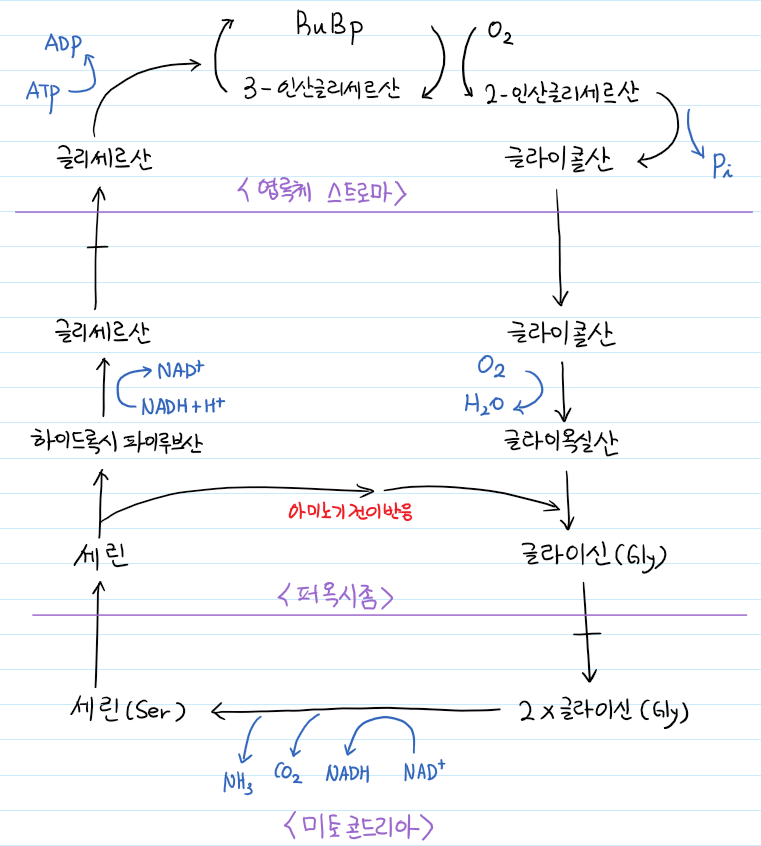 RuBp
O2
ADP
ATP
3-인산글리세르산
2-인산글리세르산
글리세르산
글라이콜산
Pi
<엽록체 스트로마>
글리세르산
글라이콜산
NAD+
NADH+H+
O2
H2O
하이드록시 파이루브산
글라이옥실산
아미노기전이반응
세린
글라이신(Gly)
<퍼옥시좀>
세린(Ser)
2×글라이신(Gly)
NH3
CO2
NADH
NAD+
<미토콘드리아>